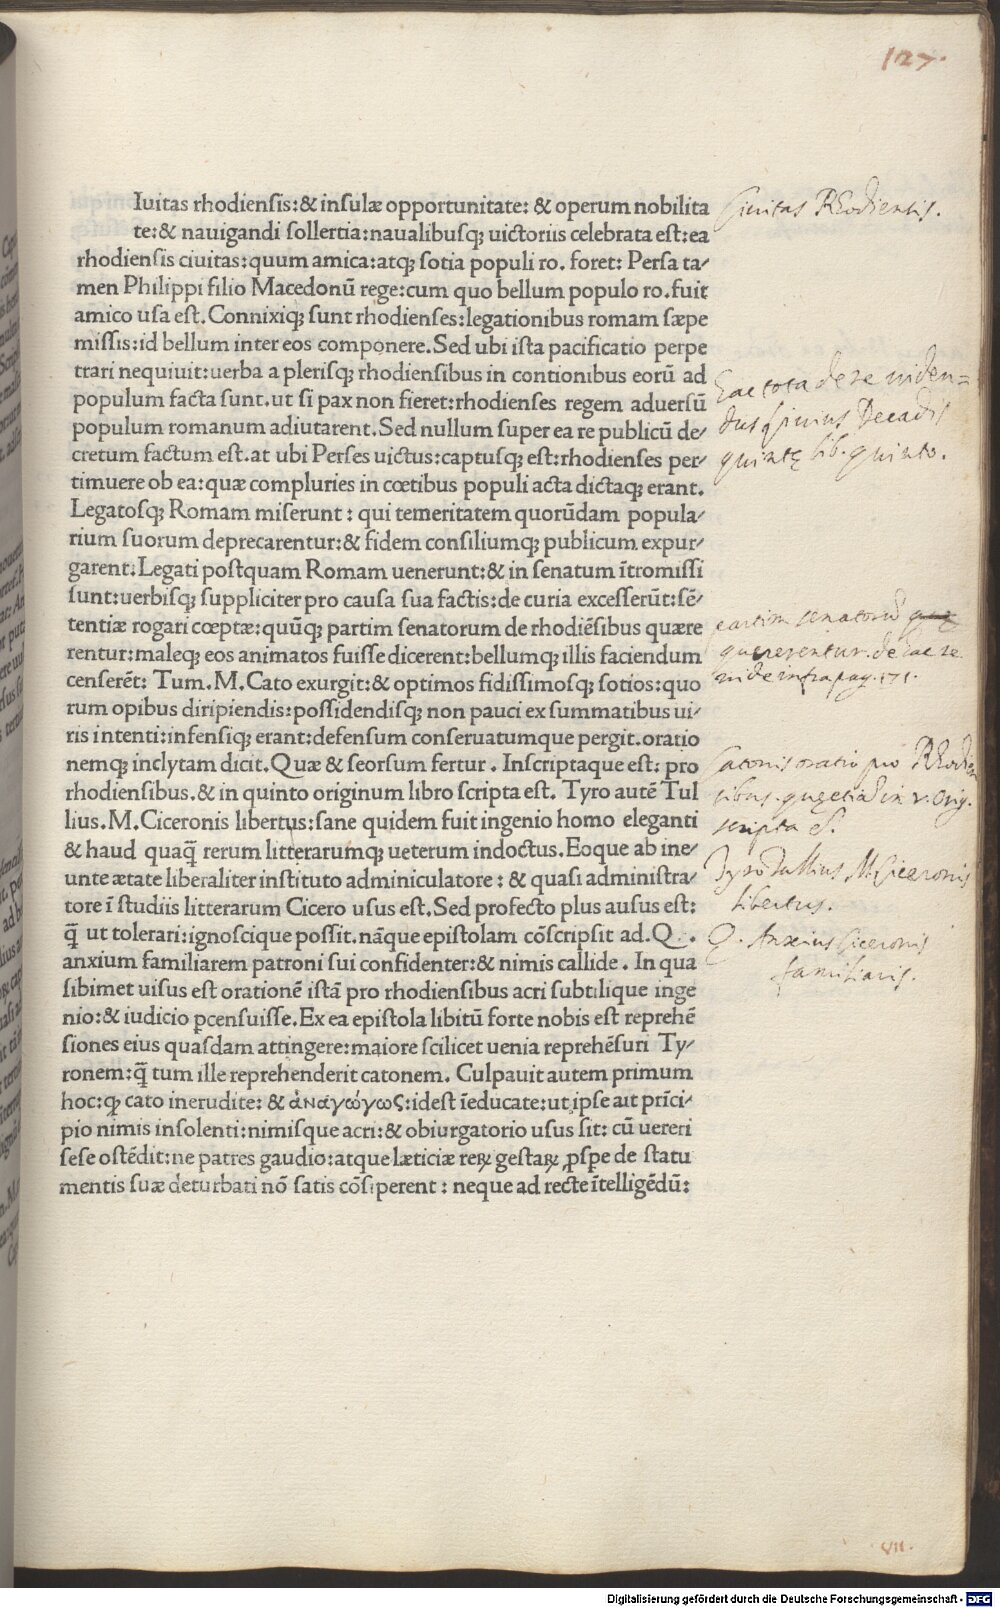 127.
Iuitas rhodiensis:& insulæ opportunitate: & operum nobilita
te:& nauigandi sollertia:naualibusq; uictoriis celebrata est:ea
rhodiensis ciuitas:quum amica:atq; sotia populi ro. foret: Persa ta/
men Philippi filio Macedonū rege:cum quo bellum populo ro.fuit
amico usa est.Connixiq; sunt rhodienses:legationibus romam sæpe
missis:id bellum inter eos componere.Sed ubi ista pacificatio perpe
trari nequiuit:uerba a plerisq; rhodiensibus in contionibus eorū ad
populum facta sunt.ut si pax non fieret:rhodienses regem aduersū
populum romanum adiutarent.Sed nullum super ea re publicū de/
cretum factum est.at ubi Perses uictus:captusq; est:rhodienses per/
timuere ob ea:quæ compluries in cœtibus populi acta dictaq; erant.
Legatosq; Romam miserunt: qui temeritatem quorūdam popula/
rium suorum deprecarentur:& fidem consiliumq; publicum expur/
garent:Legati postquam Romam uenerunt:& in senatum ītromissi
sunt:uerbisq; suppliciter pro causa sua factis:de curia excesserūt:sē/
tentiæ rogari cœptæ:quūq; partim senatorum de rhodiēsibus quære
rentur:maleq; eos animatos fuisse dicerent:bellumq; illis faciendum
censerēt: Tum.M.Cato exurgit:& optimos fidissimosq; sotios:quo
rum opibus diripiendis:possidendisq; non pauci ex summatibus ui/
ris intenti:infensiq; erant:defensum conseruatumque pergit.oratio
nemq; inclytam dicit.Quæ & seorsum fertur. Inscriptaque est: pro
rhodiensibus.& in quinto originum libro scripta est. Tyro autē Tul
lius.M.Ciceronis libertus:sane quidem fuit ingenio homo eleganti
& haud quaq̄ rerum litterarumq; ueterum indoctus.Eoque ab ine/
unte ætate liberaliter instituto adminiculatore: & quasi administra/
tore ī studiis litterarum Cicero usus est.Sed profecto plus ausus est:
q̄ ut tolerari:ignoscique possit.nāque epistolam cōscripsit ad.Q.
anxium familiarem patroni sui confidenter:& nimis callide. In qua
sibimet uisus est orationē istā pro rhodiensibus acri subtilique inge
nio:& iudicio ꝑcensuisse.Ex ea epistola libitū forte nobis est reprehē
siones eius quasdam attingere:maiore scilicet uenia reprehēsuri Ty/
ronem:q̄ tum ille reprehenderit catonem. Culpauit autem primum
hoc:ꝙ cato inerudite: & ἀναγώγως:idest īeducate:ut ipse ait prīci/
pio nimis insolenti:nimisque acri:& obiurgatorio usus sit: cū uereri
sese ostēdit:ne patres gaudio:atque læticiæ reꝝ gestaꝝ ꝓspe de statu
mentis suæ deturbati nō satis cōsiperent: neque ad recte ītelligēdū:
Ciuitas Rhodiensis.
Hac tota de re uiden=
dus Liuius Decadis
quintę lib. quinto.
partim senatorū
quererentur. de hac re
uide infra pag. 171.
Catonis oratio pro Rhodien
sibus. quę etiā in v. Orig.
scripta est.
Tyro Tullius M. Ciceronis
libertus.
Q. Anxius Ciceronis
familiaris.
VII.
Digitalisierung gefördert durch die Deutsche Forschungsgemeinschaft - DFG